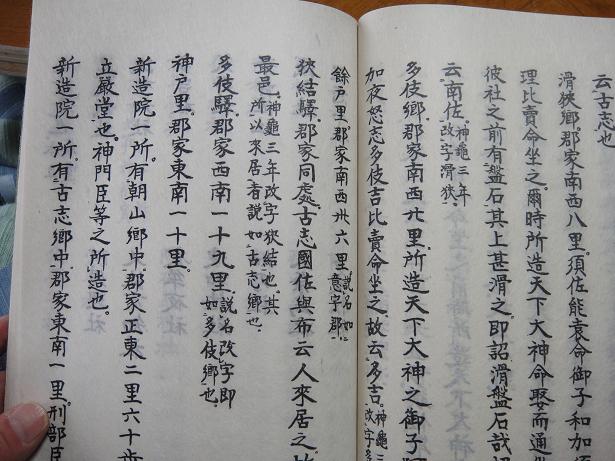 云古志也
滑狹郷。郡家南西八里。須佐能袁命御子和加須
理比賣命坐之。爾時所造天下大神命娶而通坐
彼社之前有盤石其上甚滑之。即詔滑盤石哉詔
云南佐。神龜三年改字滑狹
多伎郷。郡家南西廾里。所造天下大神之御子阿
加夜怒志多伎吉比賣命坐之。故云多吉。神龜三年改字多
餘戸里。郡家南西卅六里。説名如意宇郡
狹結驛。郡家同處古志國佐與布云人來居之。故
最邑。神龜三年改字狹結也。其所以來居者説如古志郷也
多伎驛。郡家西南一十九里。説名改字即如多伎郷也
神戸里。郡家東南一十里。
新造院一所。有朝山郷中。郡家正東二里六十歩
立嚴堂也。神門臣等之所造也。
新造院一所。有古志郷中。郡家東南一里。刑部臣